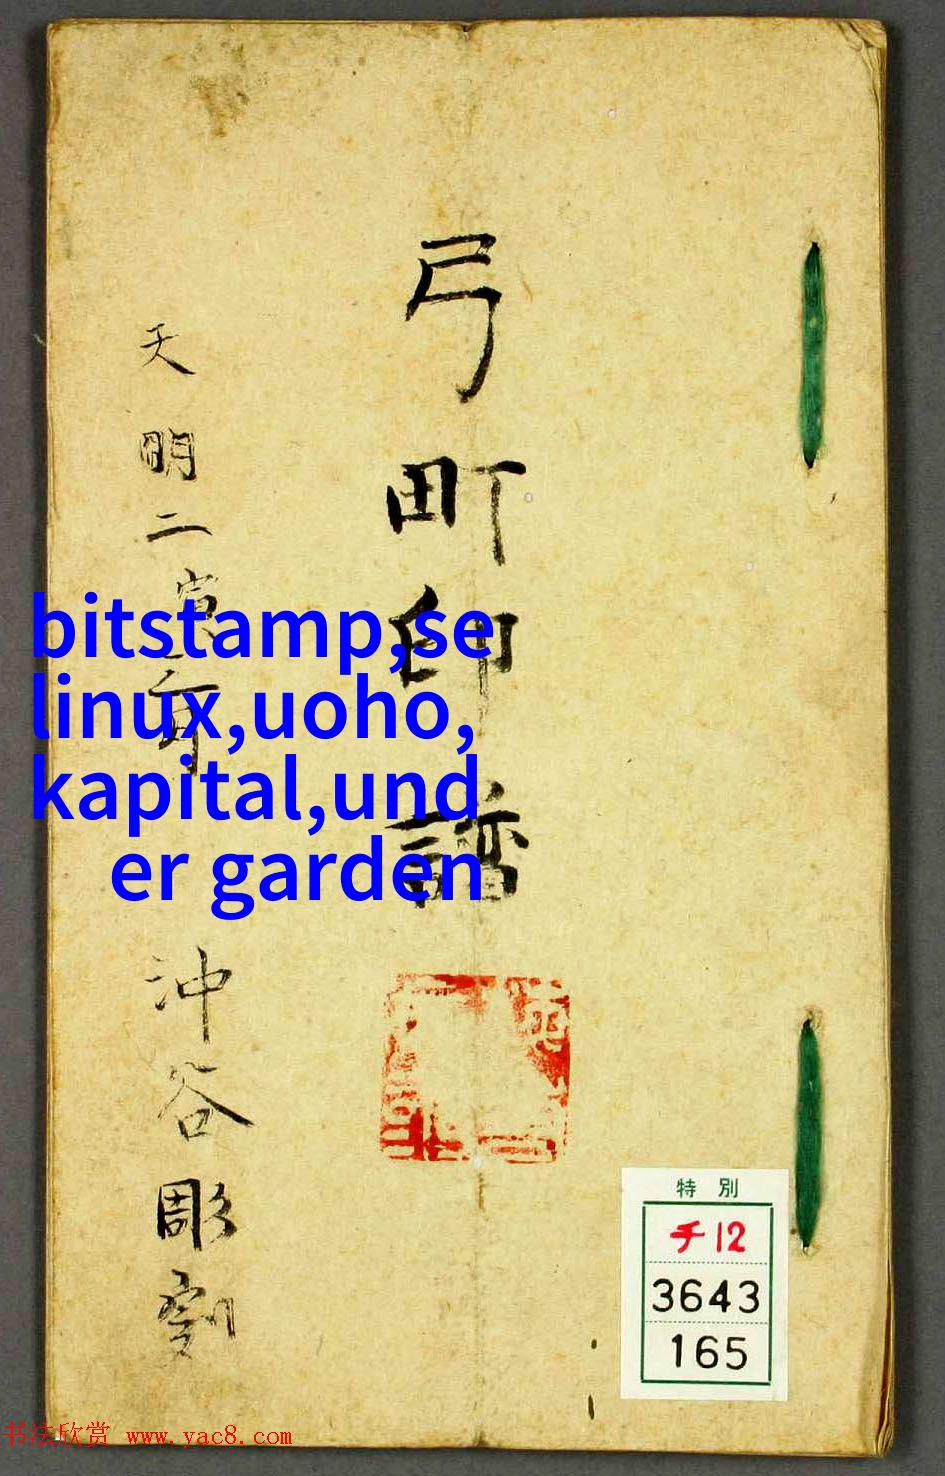 弓町印譜
天明二寅年
沖谷彫刻
bitstamp,se
linux,uoho,
kapital,und
er garden
特別
チ12
3643
165
书法欣赏 www.yac8.com